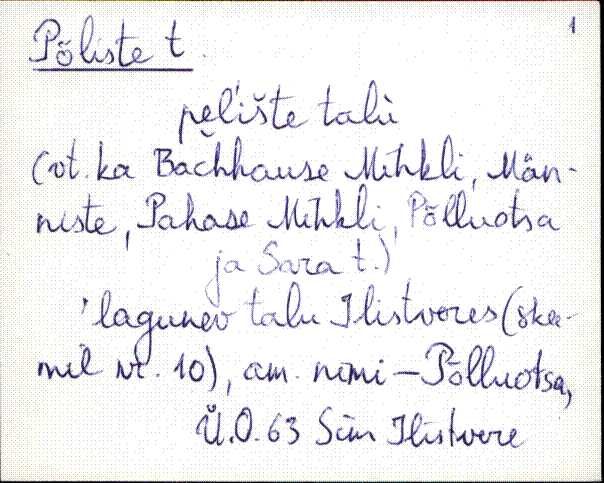 1
Põliste t.
pe̮l'ište talù
(vt. ka Bachhause Mihkli, Män-
niste, Pahase Mihkli, Põlluotsa
ja Sara t.)
'lagunev talu Ilistveres (ske-
mil nr. 10), am. nimi – Põlluotsa,
Ü.O. 63 Sim Ilistvere